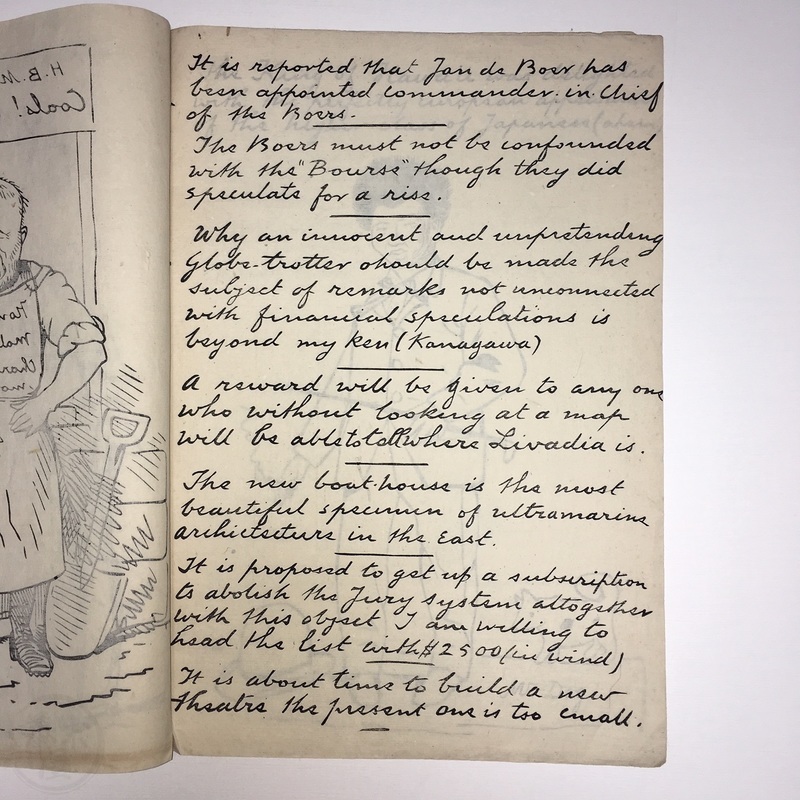 H.B.M
Coals!
It is reported that Jan de Boer has
been appointed commander-in-Chief
of the Boers.
The Boers must not be confounded
with the "Bourse" though they did
speculate for a rise.
Why an innocent and unpretending
Globe-trotter should be made the
subject of remarks not unconnected
with financial speculations is
beyond my ken (Kanagawa)
A reward will be given to any one
who without looking at a map
will be able to tell where Livadia is.
The new boat-house is the most
beautiful specimen of ultramarine
architecture in the East.
It is proposed to get up a subscription
to abolish the Jury system altogether
with this object I am willing to
head the list with $2500 (in wind)
It is about time to build a new
theatre the present one is too small.